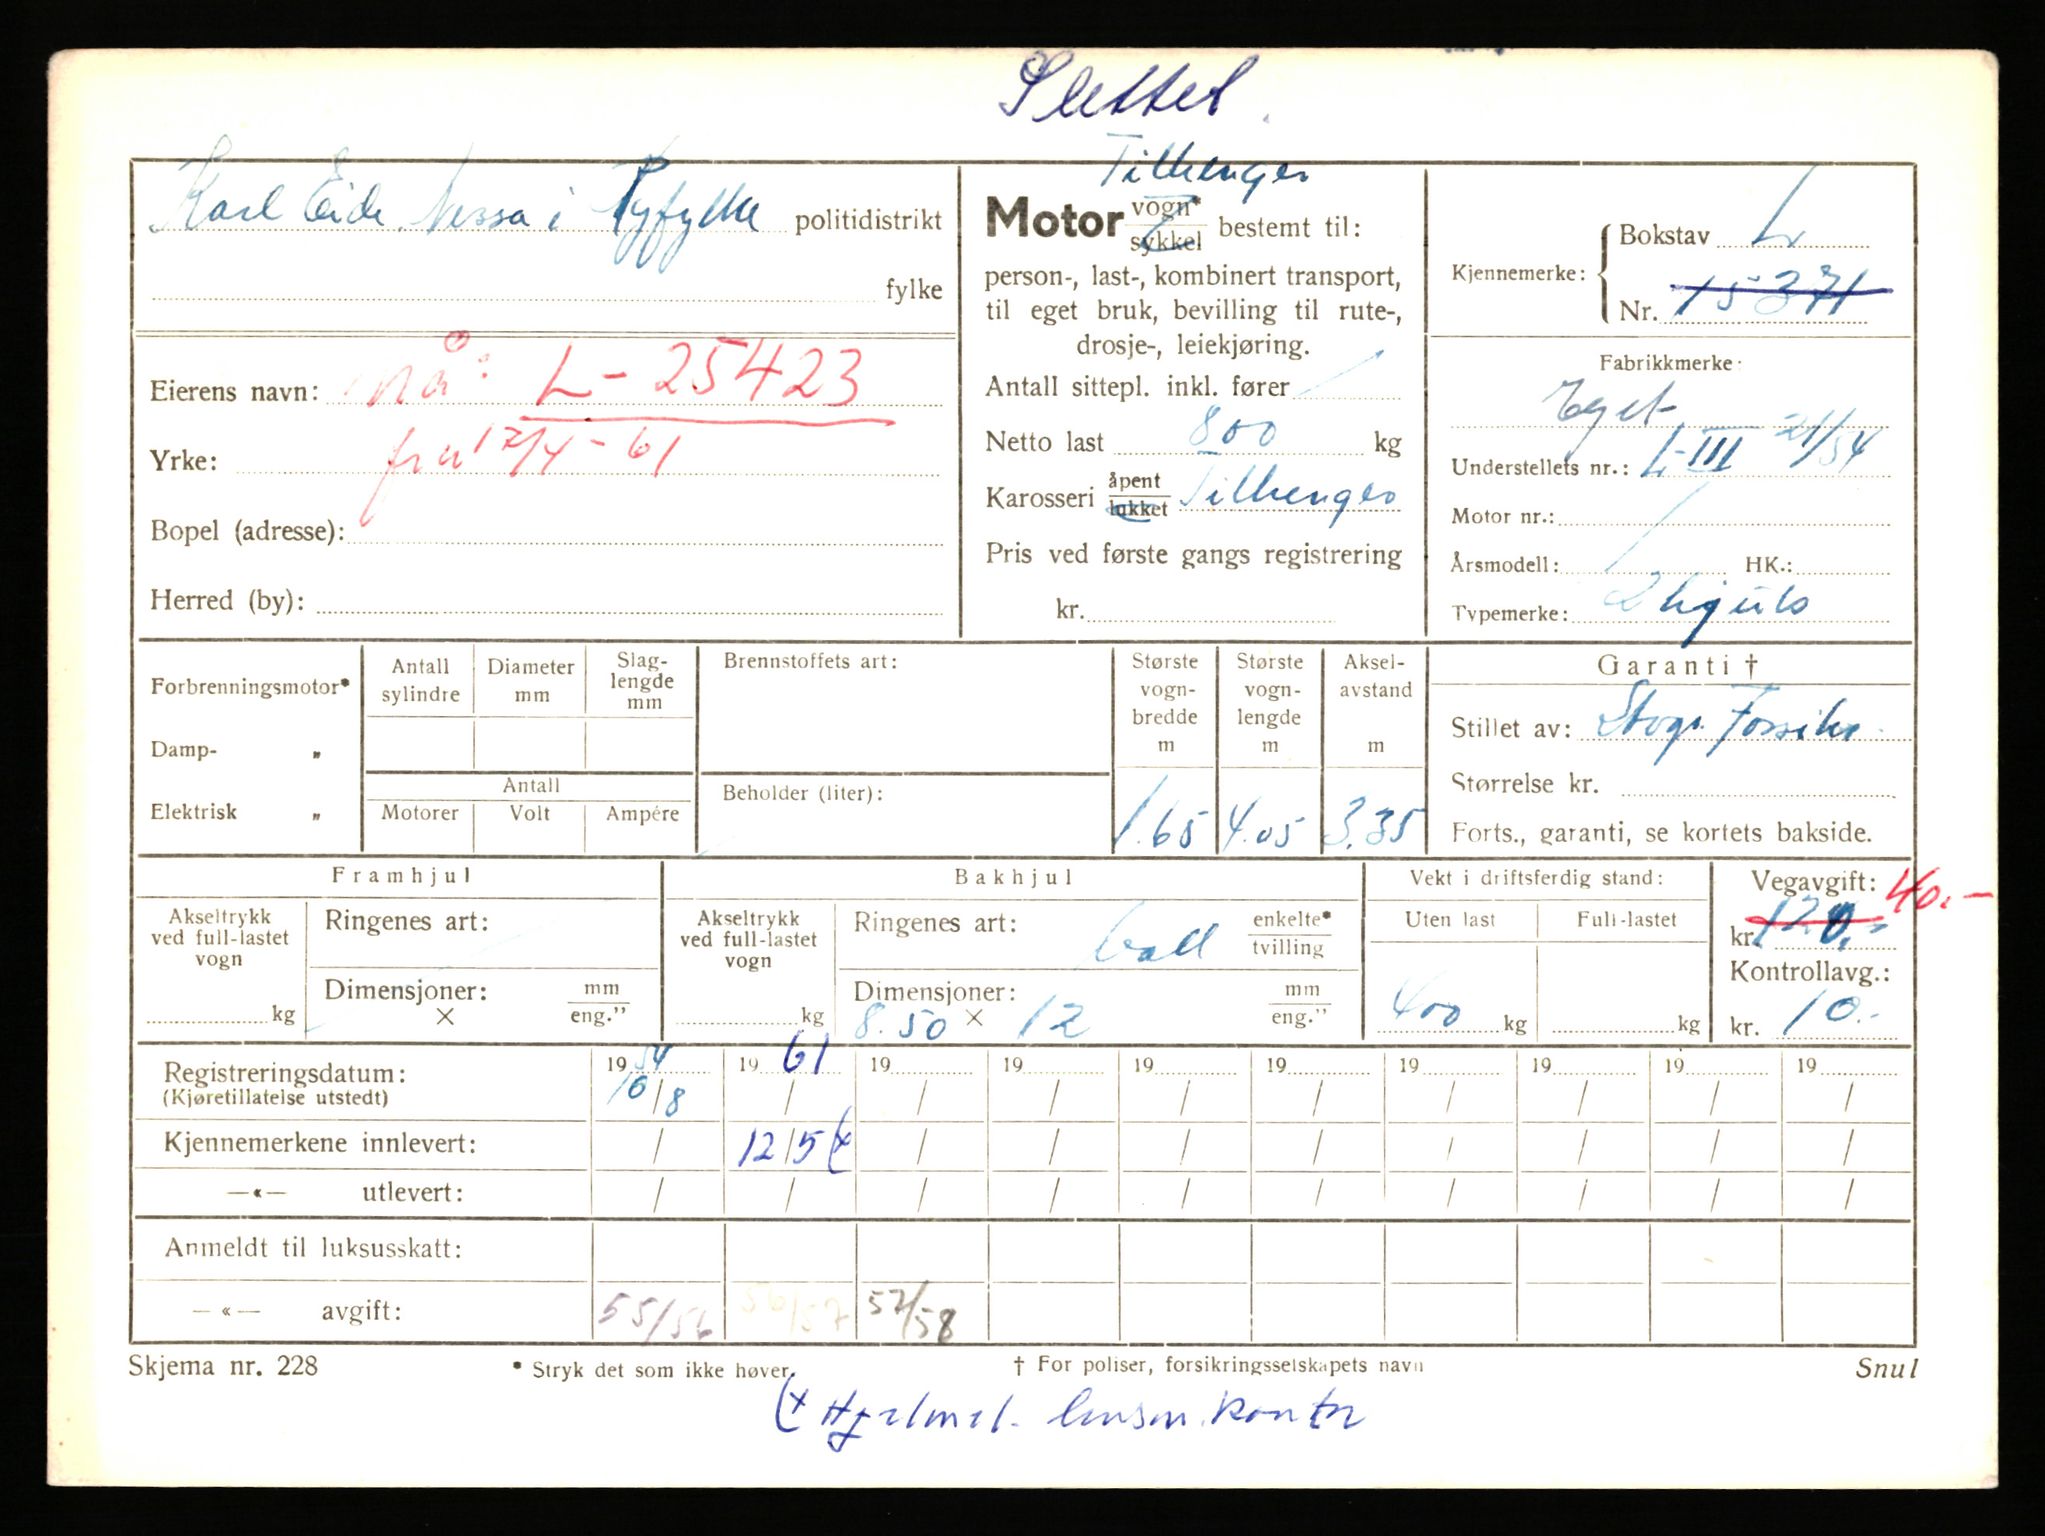 Slettet.
Karl Eide, Nessa i Ryfylke politidistrikt
fylke
Eierens navn: nå: L-25423
Yrke: fra 17/4-61
Bopel (adresse):
Herred (by):
Tilhenger
Motor vogn* sykkel bestemt til:
person-, last-, kombinert transport,
til eget bruk, bevilling til rute-,
drosje-, leiekjøring.
Antall sittepl. inkl. fører
Netto last 800 kg
Karosseri åpent lukket Tilhenger
Pris ved første gangs registrering
kr.
Kjennemerke: Bokstav L
Nr. 15371
Fabrikkmerke:
Eget
Understellets nr.: L-III 21/54
Motor nr.:
Årsmodell: HK.:
Typemerke: 2 hjuls
Forbrenningsmotor*
Damp- „
Elektrisk „
Antall sylindre
Diameter mm
Slag-lengde mm
Antall
Motorer Volt Ampére
Brennstoffets art:
Beholder (liter):
Største vogn-bredde m
1.65
Største vogn-lengde m
4.05
Aksel-avstand m
3.35
Garanti †
Stillet av: Storebr. Forsikr.
Størrelse kr.
Forts., garanti, se kortets bakside.
Framhjul
Akseltrykk ved full-lastet vogn
kg
Ringenes art:
Dimensjoner: mm
× eng."
Bakhjul
Akseltrykk ved full-lastet vogn
kg
Ringenes art: ball enkelte* tvilling
Dimensjoner: mm
8.50 × 12 eng."
Vekt i driftsferdig stand:
Uten last Full-lastet
400 kg kg
Vegavgift: 40.-
kr. 120.-
Kontrollavg.:
kr. 10.-
Registreringsdatum: 1954 1961 19 19 19 19 19 19 19 19
(Kjøretillatelse utstedt) 16/8 / / / / / / / / /
Kjennemerkene innlevert: / 12/5 (x / / / / / / / /
—«— utlevert: / / / / / / / / / /
Anmeldt til luksusskatt:
—«— avgift: 55/56 56/57 57/58
Skjema nr. 228 * Stryk det som ikke høver. † For poliser, forsikringsselskapets navn Snul
(x Hjelmel. lensm.kontor